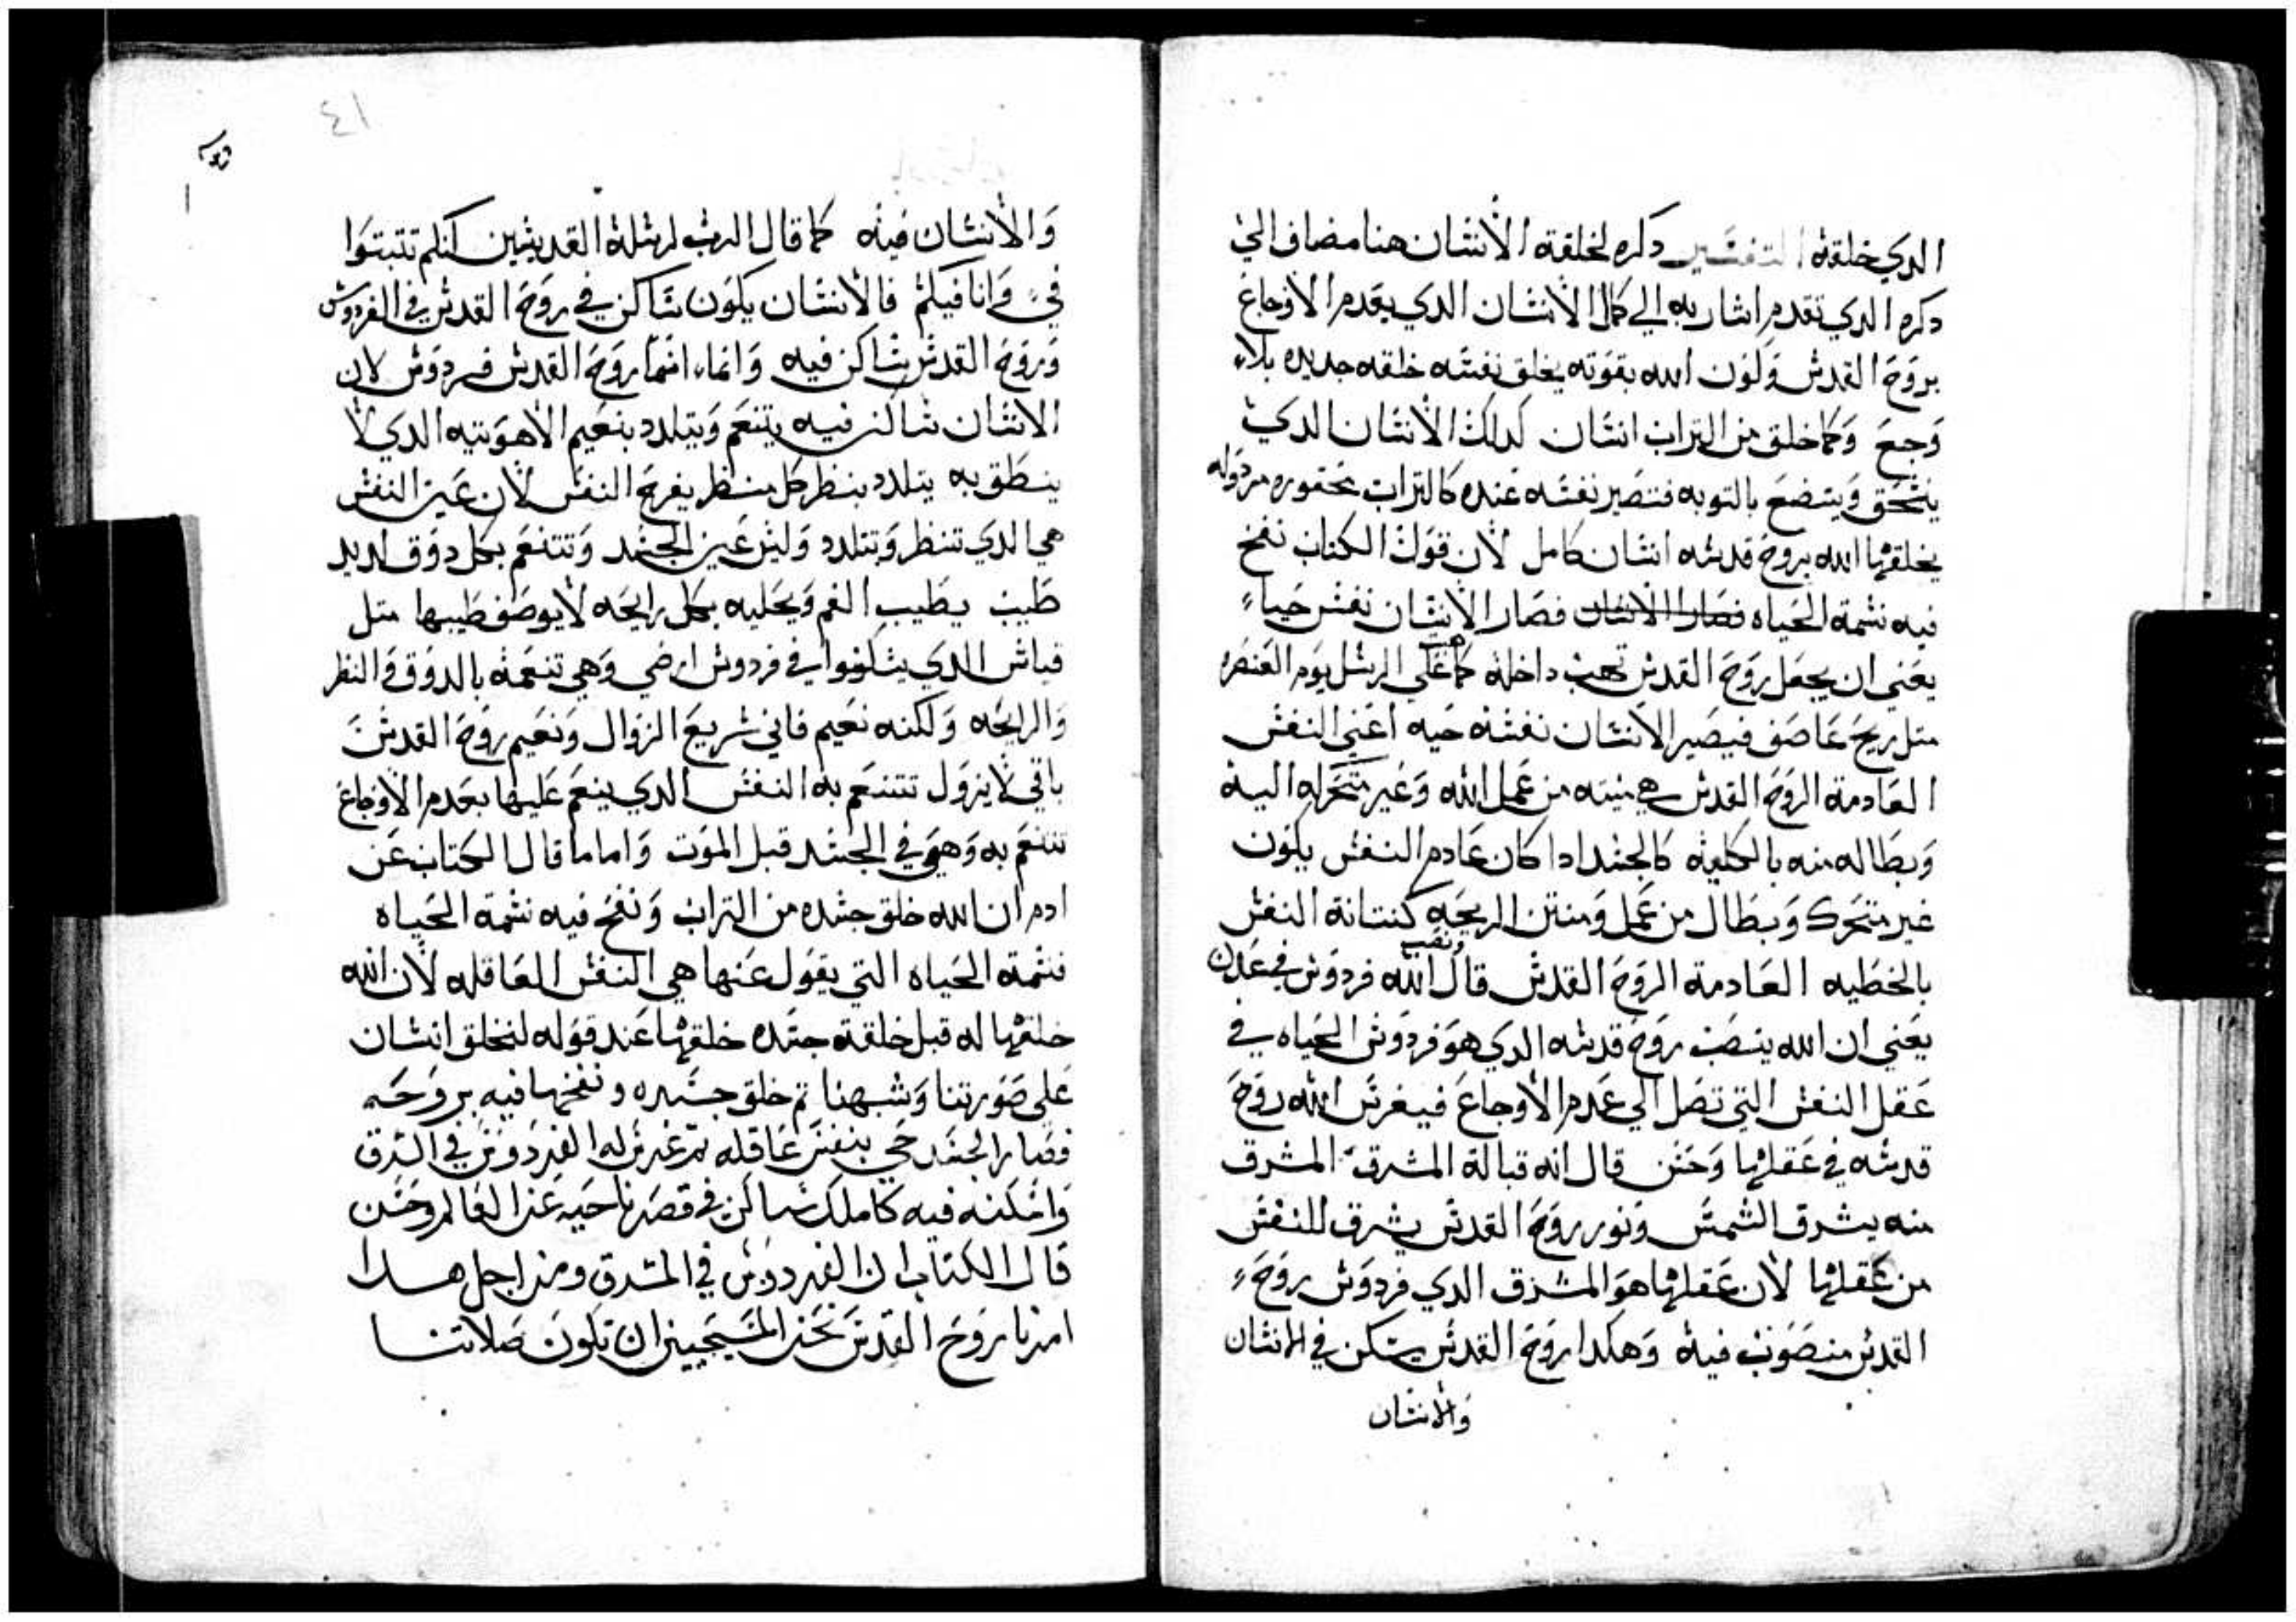 الدي خلقه التفسير دكره لخلقة الأنسان هنا مضاف الي
دكره الدي تقدم اشار به الي كمال الأنسان الدي يعدم الأوجاع
بروح القدس ولون الله بقوته يخلق نفسه خلقه جديده بلا
وجع وكما خلق من التراب انسان كدلك الأنسان الدي
ينسحق ويتضع بالتوبه فتصير نفسه عنده كالتراب محقوره مردوله
يخلقها الله بروح قدسه انسان كامل لأن قول الكتاب نفخ
فيه نسمة الحياه فصار الانسان فصار الأنسان نفس حياء
يعني ان يجعل روح القدس تهب داخله كما هب علي الرسل يوم العنصره
متل ريح عاصف فيصير الأنسان نفسه حيه اعني النفس
العادمة الروح القدس هي ميته من عمل الله وغير متحركه اليه
وبطاله منه بالكليه كالجسد ادا كان عادم النفس يكون
غير متحرك وبطال من عمل ومنتن الريحه كنتانة النفس
بالخطيه العادمة الروح القدس قال ونصب الله فردوس في عدن
يعني ان الله ينصب روح قدسه الدي هو فردوس الحياه في
عقل النفس التي تصل الي عدم الأوجاع فيغرس الله روح
قدسه في عقلها وحسن قال انه قبالة المشرق المشرق
منه يشرق الشمس ونور روح القدس يشرق للنفس
من عقلها لأن عقلها هو المشرق الدي فردوس روح
القدس منصوب فيه وهكدا روح القدس يسكن في الانسان
والأنسان
٤١
والأنسان فيه كما قال الرب لرسله القديسين كنلم تتبتوا
في وانا فيكم فالأنسان يكون ساكن في روح القدس في الفردوس
وروح القدس ساكن فيه وانما اسما روح القدس فردوس لان
الانسان ساكن فيه يتنعم ويتلدد بنعيم الأهوتيه الدي لا
ينطق به يتلدد بنظر كل منظر يفرح النفس لأن عين النفس
هي الدي تنظر وتتلدد وليس عين الجسد وتتنعم بكل دوق لديد
طيب يطيب الفم ويحليه بكل رايحه لأيوصف طيبها متل
قياس الدي يسكنوا في فردوس ارضي وهي تنعمه بالدوق والنظر
والرايحه ولكنه نعيم فاني سريع الزوال ونعيم روح القدس
باقي لأيزول تتنعم به النفس الدي ينعم عليها بعدم الأوجاع
تتنعم به وهي في الجسد قبل الموت واما ما قال الكتاب عن
ادم ان الله خلق جسده من التراب ونفخ فيه نسمة الحياه
فنسمة الحياه التي يقول عنها هي النفس العاقله لأن الله
خلقها له قبل خلقة جسده خلقها عند قوله لنخلق انسان
علي صورتنا وشبهنا تم خلق جسده ونفخها فيه بروحه
فصار الجسد حي بنفس عاقله تم غرس له الفردوس في الشرق
واسكنه فيه كاملك ساكن في قصر ناحيه عن العالم وحسن
قال الكتاب ان الفردوس في المشرق ومن اجل هدا
امرنا روح القدس نحن المسيحيين ان تكون صلاتنا